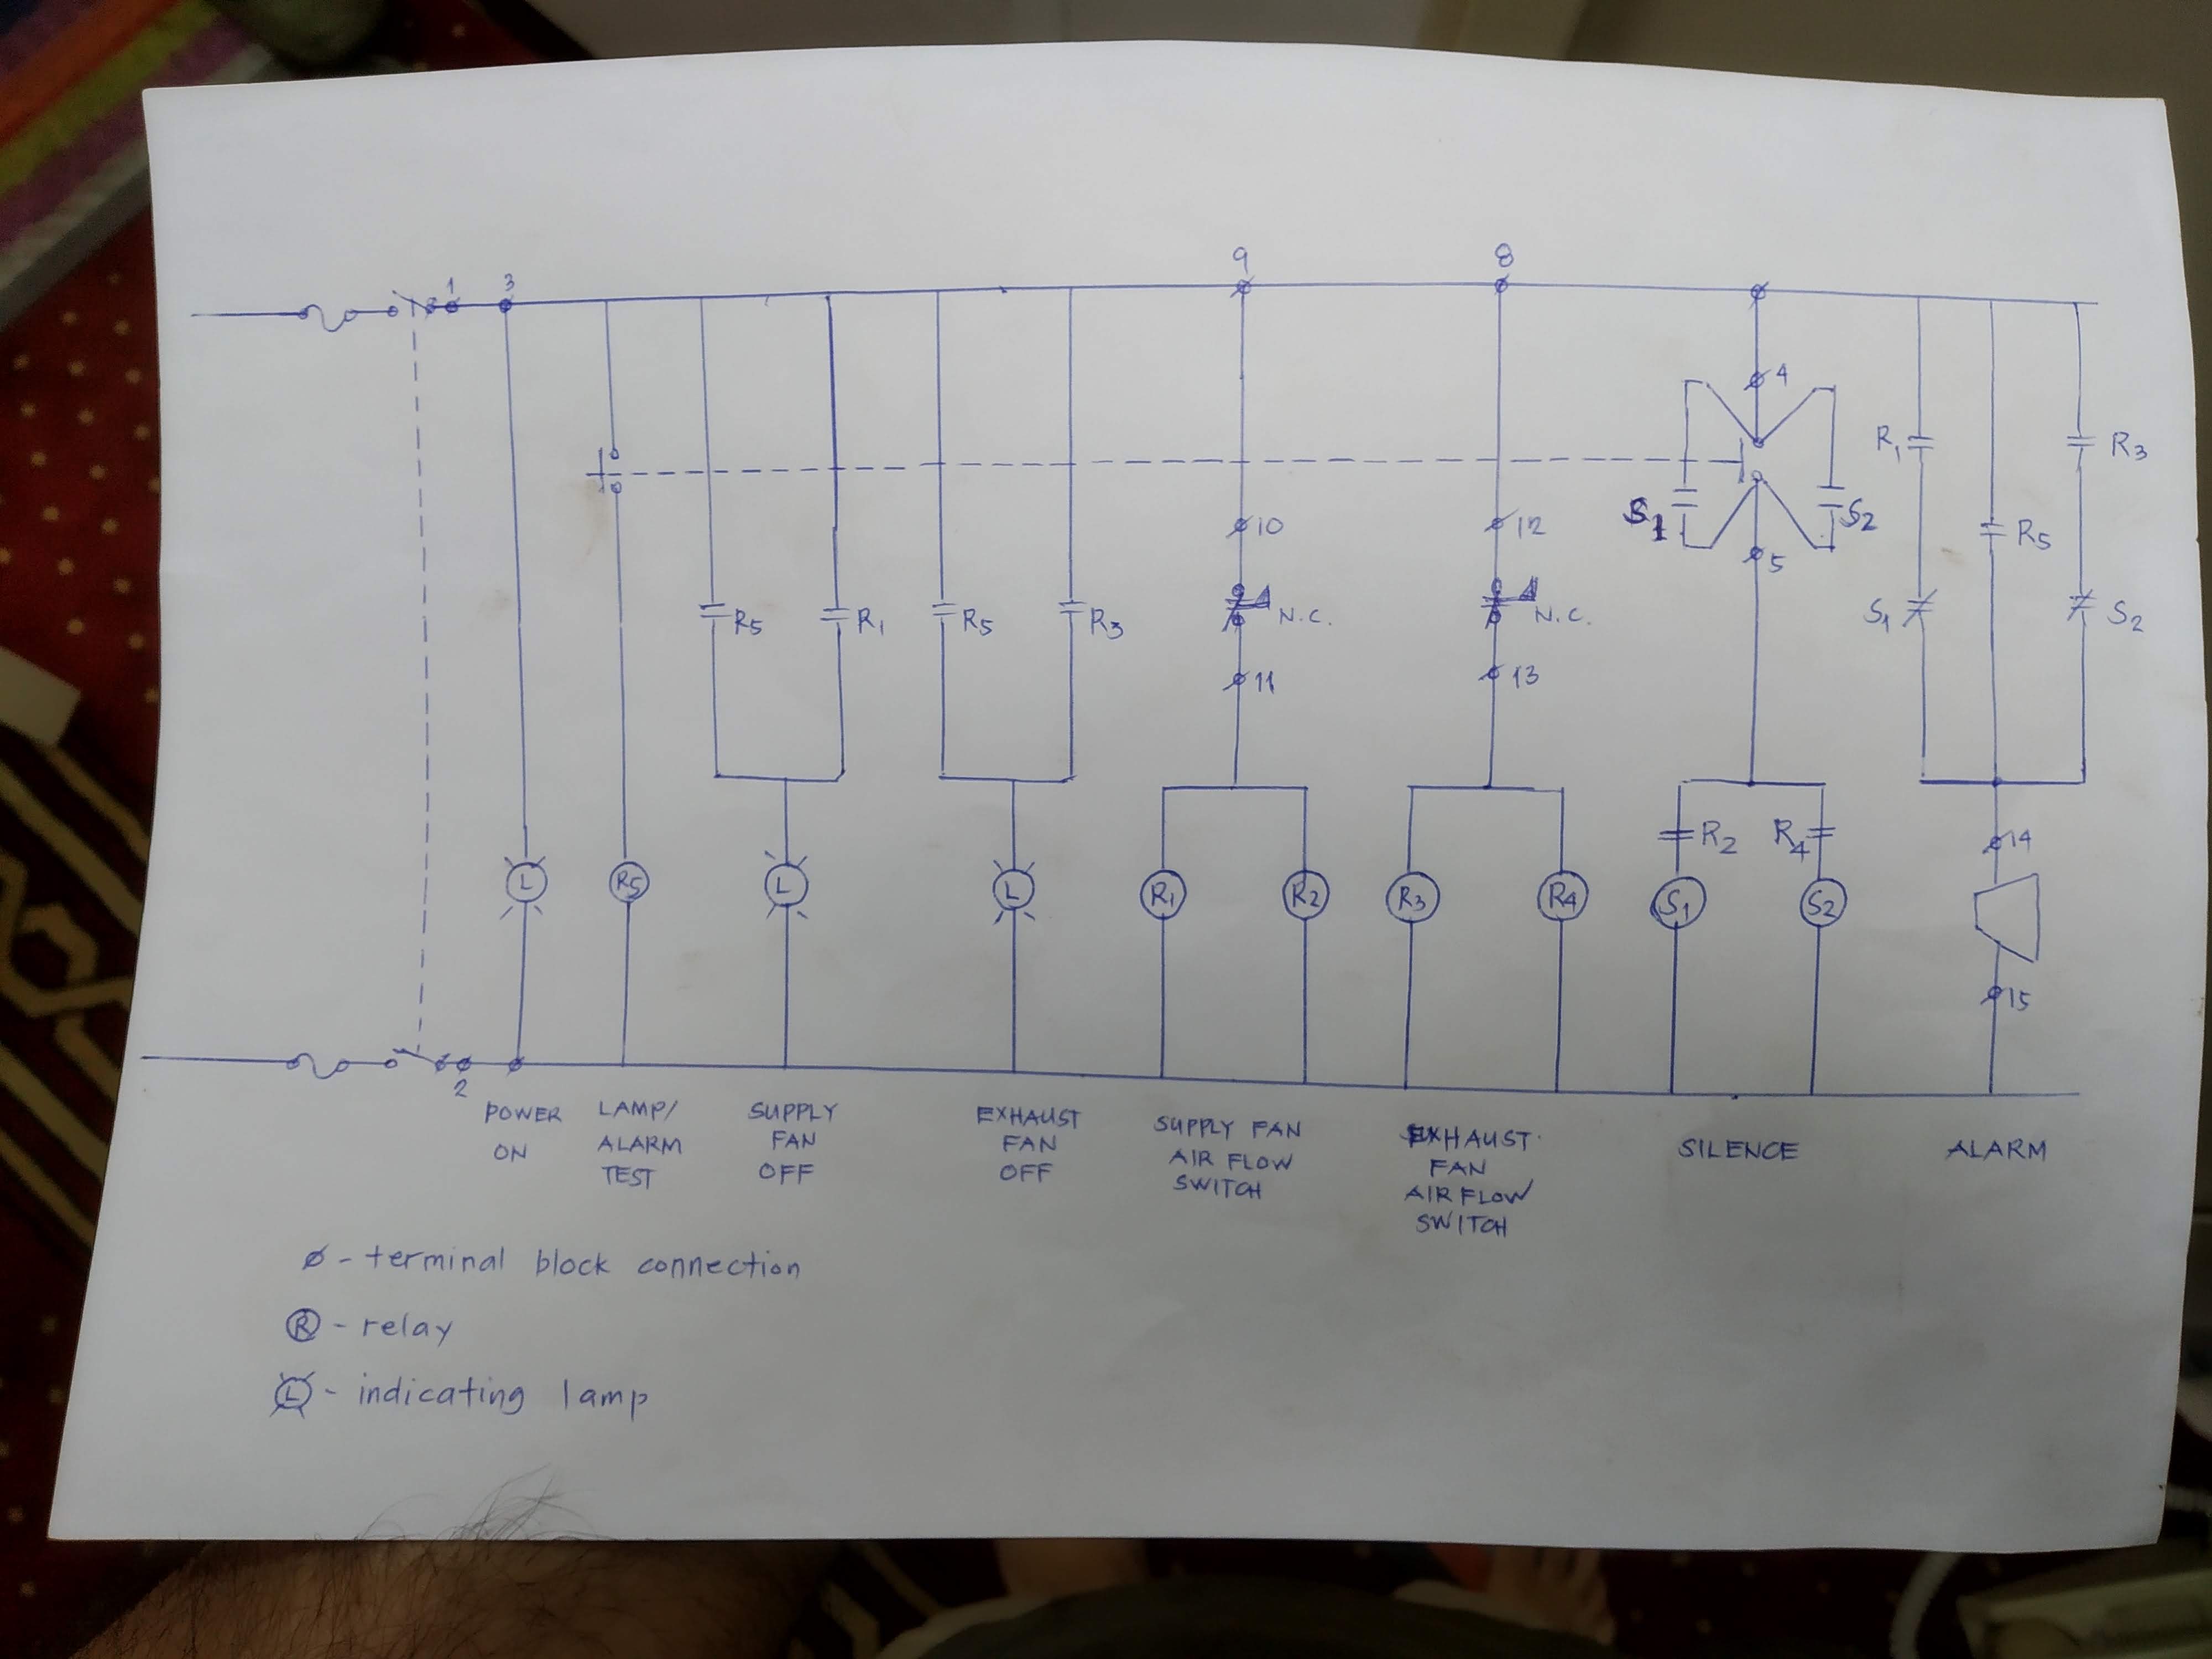 9
8
1
3
4
R1
R3
10
12
S1
S2
R5
5
R5
R1
R5
R3
N.C.
N.C.
S1
S2
11
13
R2
R4
14
L
R5
L
L
R1
R2
R3
R4
S1
S2
15
2
POWER
ON
LAMP/
ALARM
TEST
SUPPLY
FAN
OFF
EXHAUST
FAN
OFF
SUPPLY FAN
AIR FLOW
SWITCH
EXHAUST
FAN
AIR FLOW
SWITCH
SILENCE
ALARM
ø - terminal block connection
R - relay
L - indicating lamp